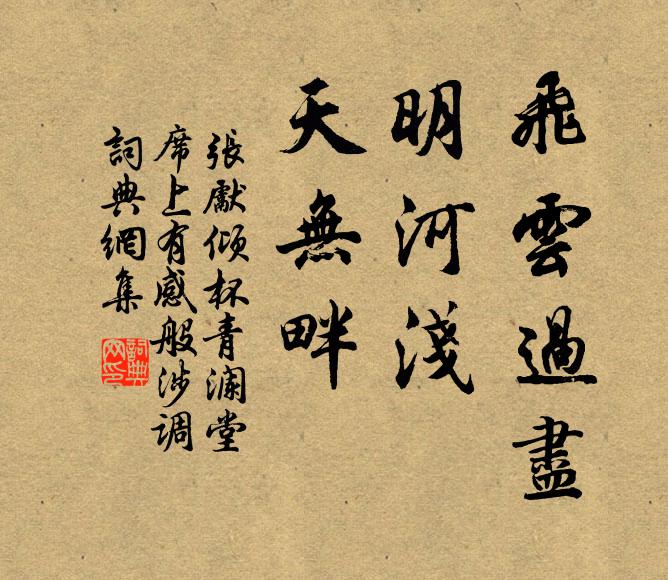 飛雲過盡
明河淺
天無畔
張獻傾杯青瀾堂
席上有感般涉调
詞典網集
詞典網印